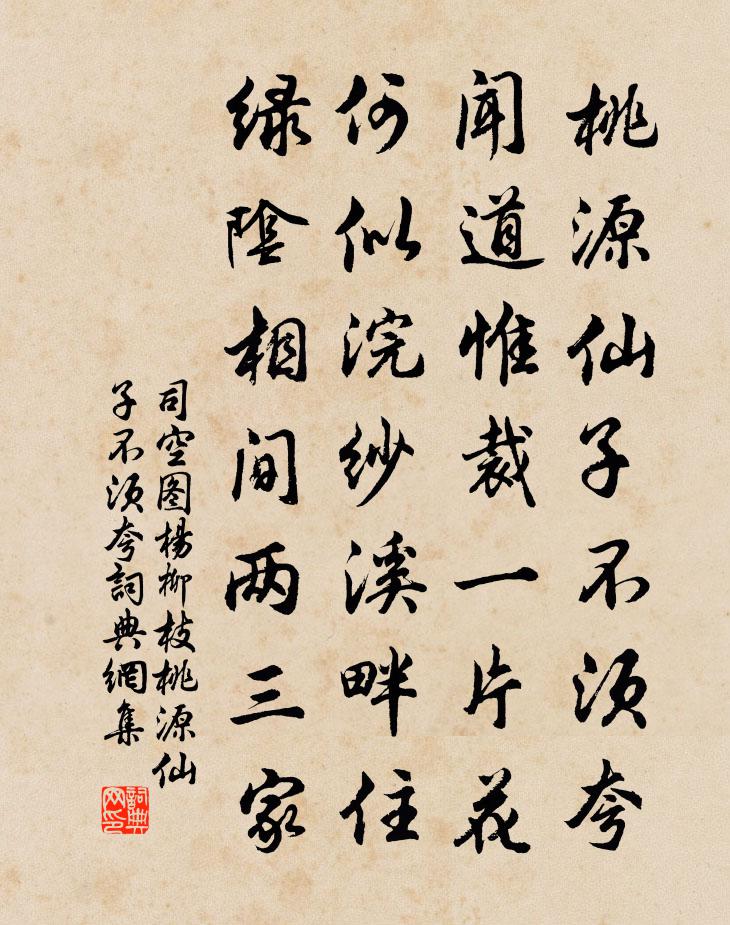 桃源仙子不须夸
闻道惟裁一片花
何似浣纱溪畔住
绿阴相间两三家
司空图杨柳枝桃源仙
子不须夸词典网集
詞典
网印